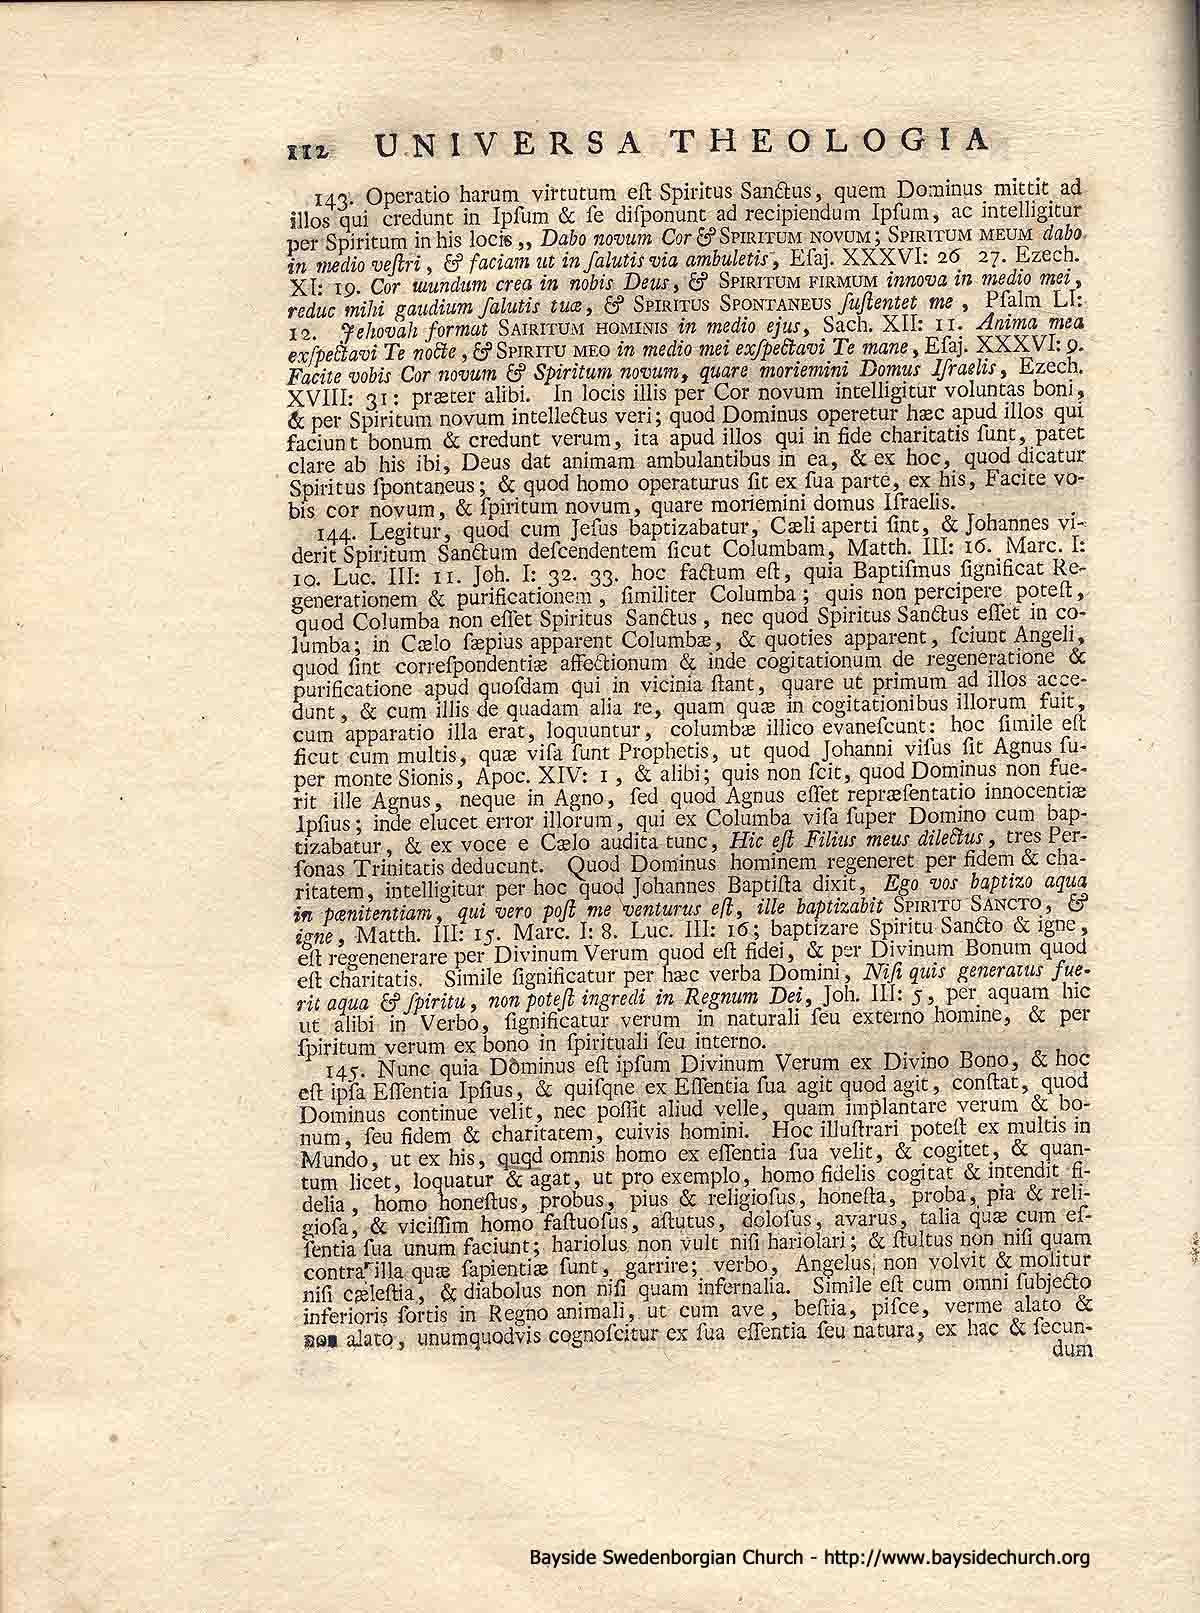 112 UNIVERSA THEOLOGIA
143. Operatio harum virtutum eſt Spiritus Sanctus, quem Dominus mittit ad
illos qui credunt in Ipſum & ſe diſponunt ad recipiendum Ipſum, ac intelligitur
per Spiritum in his locis,, Dabo novum Cor & SPIRITUM NOVUM; SPIRITUM MEUM dabo
in medio veſtri, & faciam ut in ſalutis via ambuletis, Eſaj. XXXVI: 26 27. Ezech.
XI: 19. Cor mundum crea in nobis Deus, & SPIRITUM FIRMUM innova in medio mei,
reduc mihi gaudium ſalutis tuæ, & SPIRITUS SPONTANEUS ſuſtentet me, Pſalm LI:
12. Jehovah format SAIRITUM HOMINIS in medio ejus, Sach. XII: 11. Anima mea
exſpectavi Te nocte, & SPIRITU MEO in medio mei exſpectavi Te mane, Eſaj. XXXVI: 9.
Facite vobis Cor novum & Spiritum novum, quare moriemini Domus Iſraelis, Ezech.
XVIII: 31: præter alibi. In locis illis per Cor novum intelligitur voluntas boni,
& per Spiritum novum intellectus veri; quod Dominus operetur hæc apud illos qui
faciunt bonum & credunt verum, ita apud illos qui in fide charitatis ſunt, patet
clare ab his ibi, Deus dat animam ambulantibus in ea, & ex hoc, quod dicatur
Spiritus ſpontaneus; & quod homo operaturus ſit ex ſua parte, ex his, Facite vo-
bis cor novum, & ſpiritum novum, quare moriemini domus Iſraelis.
144. Legitur, quod cum Jeſus baptizabatur, Cæli aperti ſint, & Johannes vi-
derit Spiritum Sanctum deſcendentem ſicut Columbam, Matth. III: 16. Marc. I:
10. Luc. III: 11. Joh. I: 32. 33. hoc factum eſt, quia Baptiſmus ſignificat Re-
generationem & purificationem, ſimiliter Columba; quis non percipere poteſt,
quod Columba non eſſet Spiritus Sanctus, nec quod Spiritus Sanctus eſſet in co-
lumba; in Cælo ſæpius apparent Columbæ, & quoties apparent, ſciunt Angeli,
quod ſint correſpondentiæ affectionum & inde cogitationum de regeneratione &
purificatione apud quoſdam qui in vicinia ſtant, quare ut primum ad illos acce-
dunt, & cum illis de quadam alia re, quam quæ in cogitationibus illorum fuit,
cum apparatio illa erat, loquuntur, columbæ illico evaneſcunt: hoc ſimile eſt
ſicut cum multis, quæ viſa ſunt Prophetis, ut quod Johanni viſus ſit Agnus ſu-
per monte Sionis, Apoc. XIV: 1, & alibi; quis non ſcit, quod Dominus non fue-
rit ille Agnus, neque in Agno, ſed quod Agnus eſſet repræſentatio innocentiæ
Ipſius; inde elucet error illorum, qui ex Columba viſa ſuper Domino cum bap-
tizabatur, & ex voce e Cælo audita tunc, Hic eſt Filius meus dilectus, tres Per-
ſonas Trinitatis deducunt. Quod Dominus hominem regeneret per fidem & cha-
ritatem, intelligitur per hoc quod Johannes Baptiſta dixit, Ego vos baptizo aqua
in pœnitentiam, qui vero poſt me venturus eſt, ille baptizabit SPIRITU SANCTO, &
igne, Matth. III: 15. Marc. I: 8. Luc. III: 16; baptizare Spiritu Sancto & igne,
eſt regenenerare per Divinum Verum quod eſt fidei, & per Divinum Bonum quod
eſt charitatis. Simile ſignificatur per hæc verba Domini, Niſi quis generatus fue-
rit aqua & ſpiritu, non poteſt ingredi in Regnum Dei, Joh. III: 5, per aquam hic
ut alibi in Verbo, ſignificatur verum in naturali ſeu externo homine, & per
ſpiritum verum ex bono in ſpirituali ſeu interno.
145. Nunc quia Dominus eſt ipſum Divinum Verum ex Divino Bono, & hoc
eſt ipſa Eſſentia Ipſius, & quiſqne ex Eſſentia ſua agit quod agit, conſtat, quod
Dominus continue velit, nec poſſit aliud velle, quam implantare verum & bo-
num, ſeu fidem & charitatem, cuivis homini. Hoc illuſtrari poteſt ex multis in
Mundo, ut ex his, quqd omnis homo ex eſſentia ſua velit, & cogitet, & quan-
tum licet, loquatur & agat, ut pro exemplo, homo fidelis cogitat & intendit fi-
delia, homo honeſtus, probus, pius & religioſus, honeſta, proba, pia & reli-
gioſa, & viciſſim homo faſtuoſus, aſtutus, doloſus, avarus, talia quæ cum eſ-
ſentia ſua unum faciunt; hariolus non vult niſi hariolari; & ſtultus non niſi quam
contra illa quæ ſapientiæ ſunt, garrire; verbo, Angelus non volvit & molitur
niſi cæleſtia, & diabolus non niſi quam infernalia. Simile eſt cum omni ſubjecto
inferioris ſortis in Regno animali, ut cum ave, beſtia, piſce, verme alato &
non alato, unumquodvis cognoſcitur ex ſua eſſentia ſeu natura, ex hac & ſecun-
dum
Bayside Swedenborgian Church - http://www.baysidechurch.org